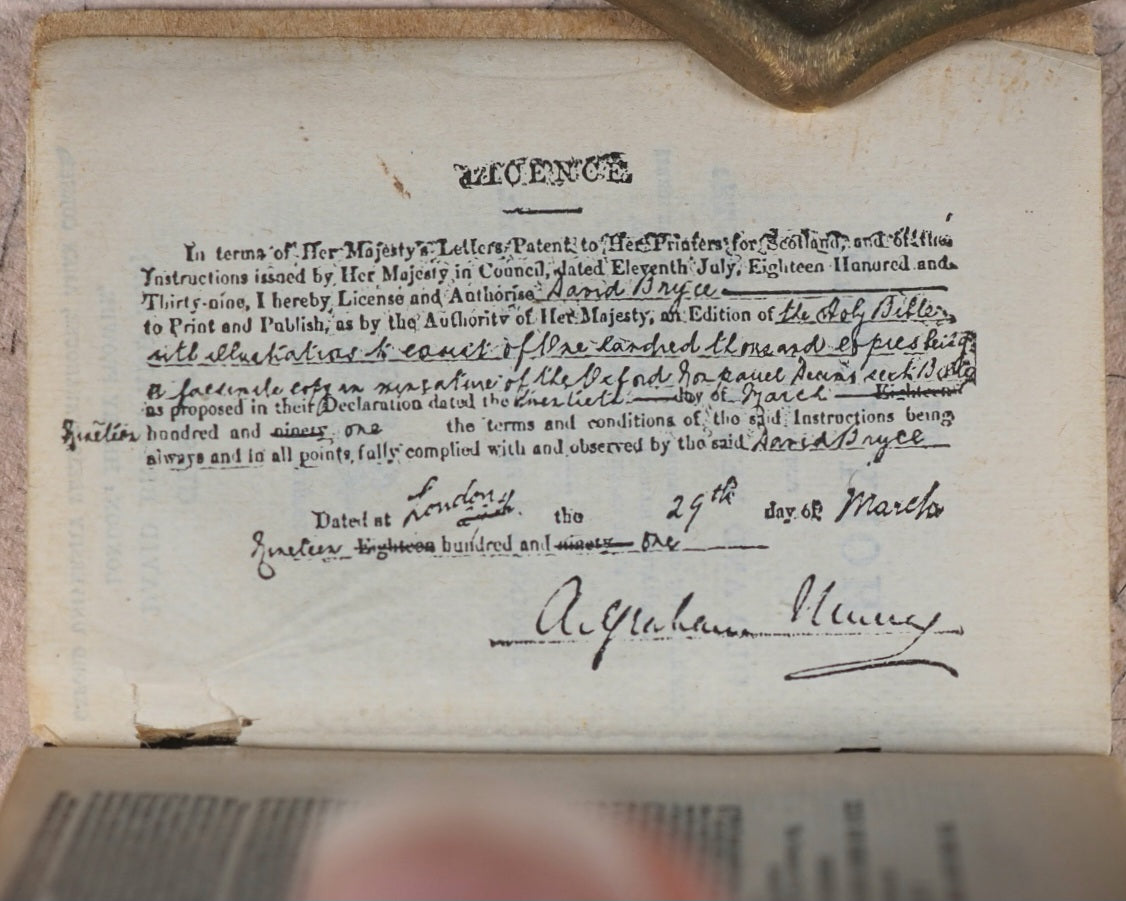 LICENCE
In terms of Her Majesty's Letters Patent to Her Printers for Scotland, and of the
Instructions issued by Her Majesty in Council, dated Eleventh July, Eighteen Hundred and
Thirty-nine, I hereby License and Authorise David Bryce
to Print and Publish, as by the Authority of Her Majesty, an Edition of the Holy Bible
with illustrations to consist of One hundred thousand copies being
a facsimile copy in miniature of the Oxford Nonpareil
as proposed in their Declaration dated the twentieth day of March Eighteen
Nineteen hundred and ninety one the terms and conditions of the said Instructions being
always and in all points fully complied with and observed by the said David Bryce
Dated at London the 29th day of March
Nineteen Eighteen hundred and ninety one
A. Graham Murray